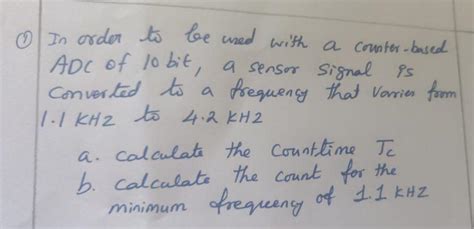 ① In order to be used with a counter-based
ADC of 10 bit, a sensor signal is
converted to a frequency that varries from
1.1 KHZ to 4.2 KHZ
a. calculate the Count time Tc
b. calculate the count for the
minimum frequency of 1.1 KHZ